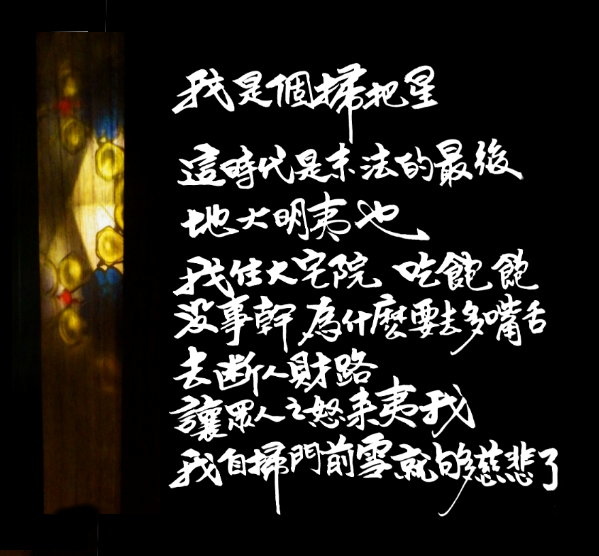 我是個掃把星
這時代是末法的最後
地大明夷也
我住大宅院 吃飽飽
沒事幹 為什麼要去多嘴舌
去斷人財路
讓眾人之怒來夷我
我自掃門前雪就夠慈悲了